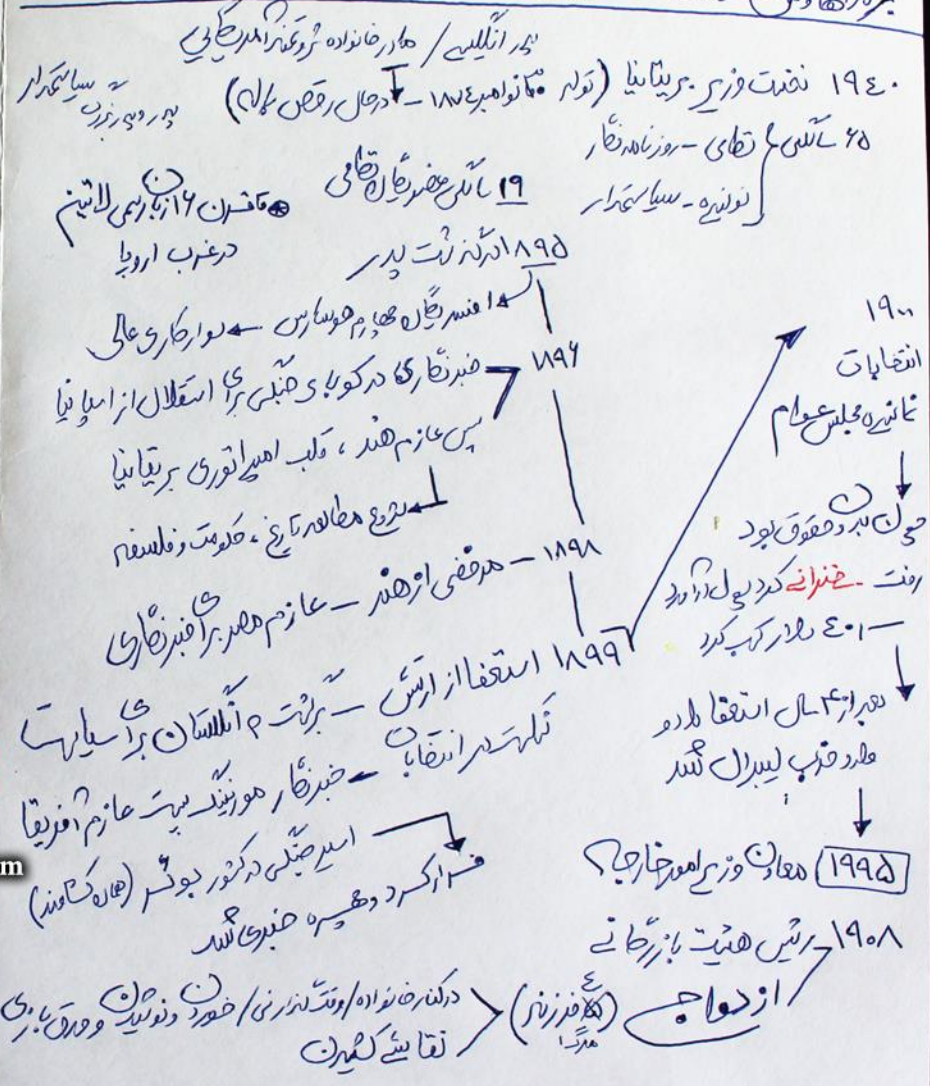 پدر انگلیسی / مادر خانواده ثروتمند آمریکایی
۱۹٤۰ نخست وزیر بریتانیا (تولد ۳۰ نوامبر ۱۸۷٤ → در حال رقص مادر)
پدر و پدربزرگ سیاستمدار
۶۵ سالگی نظامی - روزنامه نگار
نویسنده - سیاستمدار
۱۹ سالگی عضو یگان نظامی
تا قرن ۱۶ زبان رسمی لاتین
در غرب اروپا
۱۸۹۵ درگذشت پدر
افسر یگان چهارم هوسارس ← سوارکاری عالی
۱۸۹۶ خبرنگاری در کوبا، جنگ برای استقلال از اسپانیا
سپس عازم هند، قلب امپراتوری بریتانیا
شروع مطالعه تاریخ، حکومت و فلسفه
۱۸۹۸ - مرخصی از هند - عازم مصر برای خبرنگاری
۱۸۹۹ استعفا از ارتش - برگشت به انگلستان برای سیاست
شکست در انتخابات - خبرنگار مورنینگ پست عازم آفریقا
اسیر جنگی در کشور بوئر (همان کشاورز)
فرار کرد و چهره خبری شد
۱۹۰۰
انتخابات
نماینده مجلس عوام
چون بدون حقوق بود
رفت سخنرانی کرد پول درآورد
دلار کسب کرد
بعد از ۴ سال استعفا داد و
وارد حزب لیبرال شد
۱۹۹۵ معاون وزیر امور خارجه
۱۹۰۸ رئیس هیئت بازرگانی
ازدواج (٤ فرزند)
در کنار خانواده / وقت گذرانی / خوردن و نوشیدن و ورق بازی
نقاشی کشیدن
m